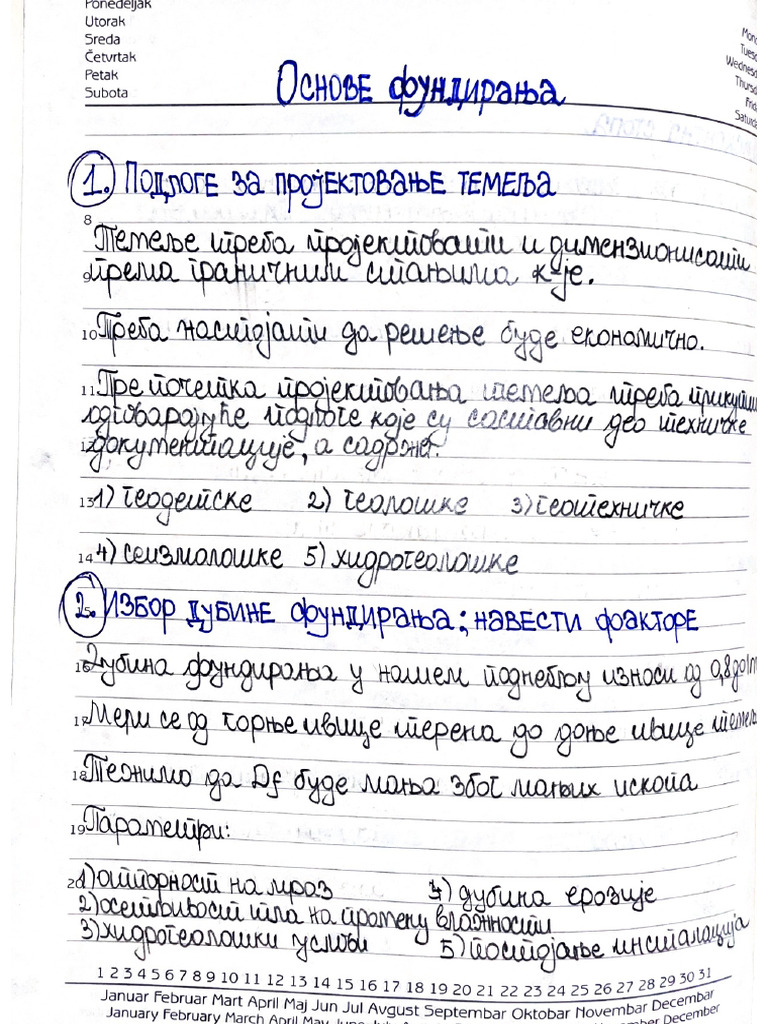 Ponedeljak
Utorak
Sreda
Četvrtak
Petak
Subota
Основе фундирања
1. Подлоге за пројектовање темеља
8
Темеље треба пројектовати и димензионисати
9 према граничним стањима
10 Треба настојати да решење буде економично.
11 Пре почетка пројектовања темеља треба
одговарајуће подлоге које су саставни део техничке
12 документације, а садрже:
13 1) геодетске 2) геолошке 3) геотехничке
14 4) сеизмолошке 5) хидрогеолошке
2. Избор дубине фундирања; навести факторе
16 Дубина фундирања у нашем поднебљу износи од 0,8 до 1m
17 Мери се од горње ивице терена до доње ивице
18 Тежимо да Df буде мања због мањих ископа
19 Параметри:
20 1) отпорност на мраз 4) дубина ерозије
2) осетљивост тла на промену влажности
3) хидрогеолошки услови 5) постојање инсталација
1 2 3 4 5 6 7 8 9 10 11 12 13 14 15 16 17 18 19 20 21 22 23 24 25 26 27 28 29 30 31
Januar Februar Mart April Maj Jun Jul Avgust Septembar Oktobar Novembar Decembar
January February March April May June